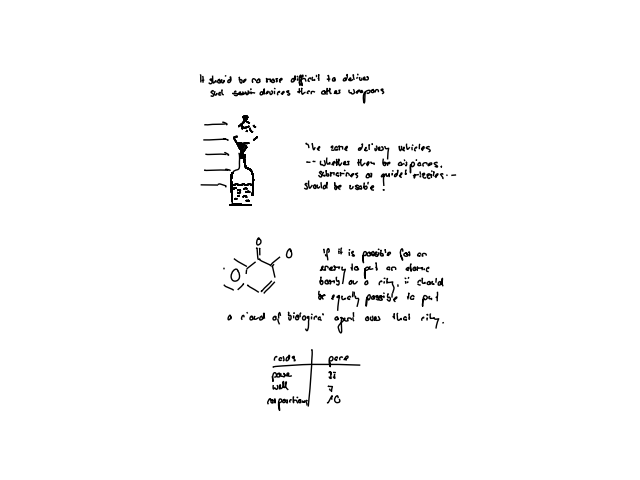 It should be no more difficult to deliver
such devices than other weapons
The same delivery vehicles
-- whether they be airplanes,
submarines or guided missiles --
should be usable.
If it is possible for an
enemy to put an atomic
bomb on a city, it should
be equally possible to put
a cloud of biological agent over that city.
O
O
O
cards pare
pose
well 7